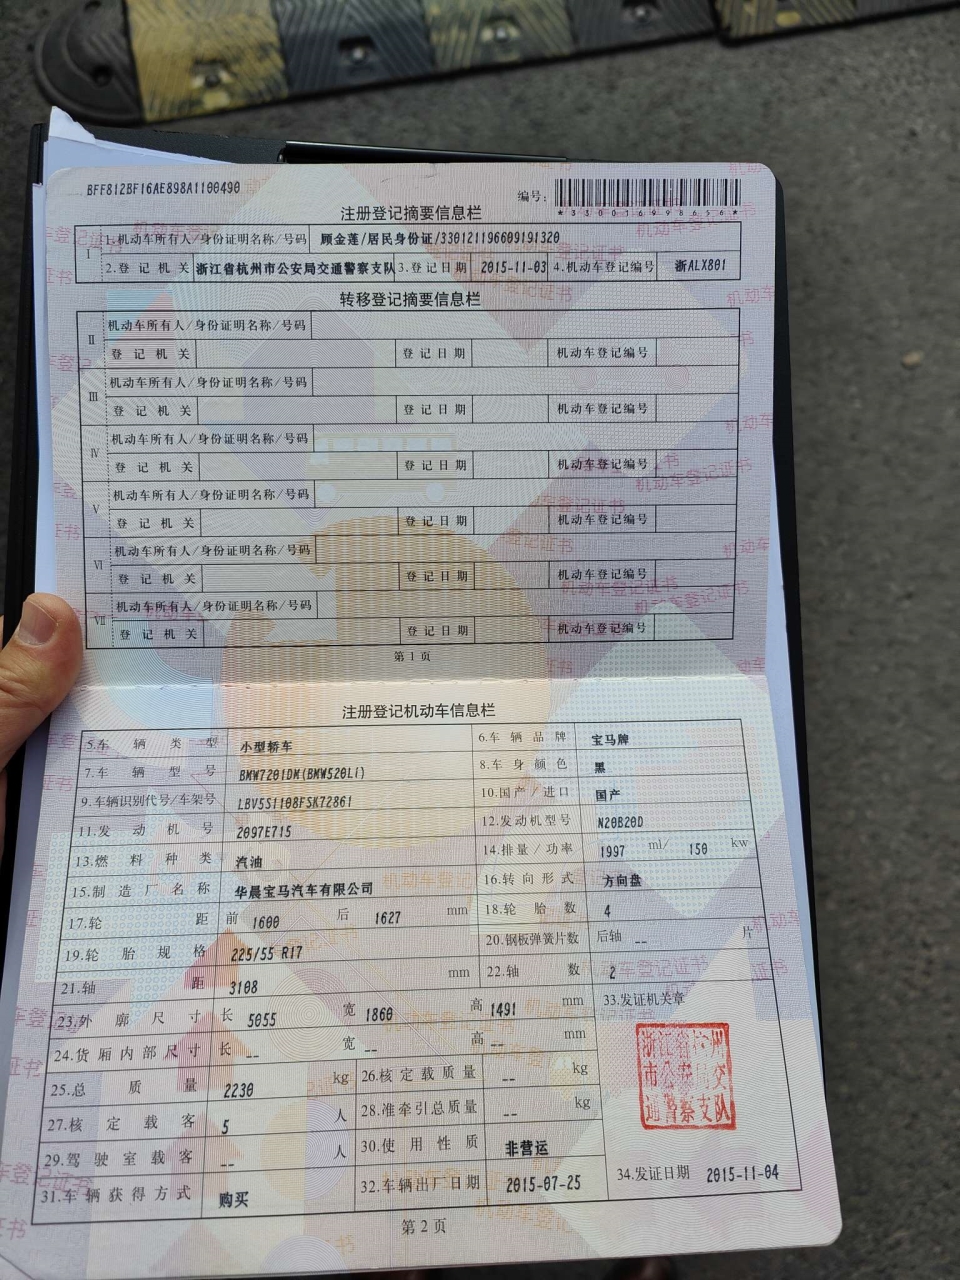 BFF812BF16AE898A1100490
编号:
*330016998656*
注册登记摘要信息栏
I 1.机动车所有人/身份证明名称/号码 顾金莲/居民身份证/330121196609191320
2.登记机关 浙江省杭州市公安局交通警察支队 3.登记日期 2015-11-03 4.机动车登记编号 浙ALX801
转移登记摘要信息栏
II 机动车所有人/身份证明名称/号码
登记机关 登记日期 机动车登记编号
III 机动车所有人/身份证明名称/号码
登记机关 登记日期 机动车登记编号
IV 机动车所有人/身份证明名称/号码
登记机关 登记日期 机动车登记编号
V 机动车所有人/身份证明名称/号码
登记机关 登记日期 机动车登记编号
VI 机动车所有人/身份证明名称/号码
登记机关 登记日期 机动车登记编号
VII 机动车所有人/身份证明名称/号码
登记机关 登记日期 机动车登记编号
第1页
注册登记机动车信息栏
5.车辆类型 小型轿车 6.车辆品牌 宝马牌
7.车辆型号 BMW7201DM(BMW520Li) 8.车身颜色 黑
9.车辆识别代号/车架号 LBV5S1108FSK72861 10.国产/进口 国产
11.发动机号 2097E715 12.发动机型号 N20B20D
13.燃料种类 汽油 14.排量/功率 1997 ml/ 150 kw
15.制造厂名称 华晨宝马汽车有限公司 16.转向形式 方向盘
17.轮距 前 1600 后 1627 mm 18.轮胎数 4
19.轮胎规格 225/55 R17 20.钢板弹簧片数 后轴 -- 片
21.轴距 3108 mm 22.轴数 2
23.外廓尺寸 长 5055 宽 1860 高 1491 mm 33.发证机关章
24.货厢内部尺寸 长 -- 宽 -- 高 -- mm
浙江省杭州市公安局交通警察支队
25.总质量 2230 kg 26.核定载质量 -- kg
27.核定载客 5 人 28.准牵引总质量 -- kg
29.驾驶室载客 -- 人 30.使用性质 非营运
31.车辆获得方式 购买 32.车辆出厂日期 2015-07-25 34.发证日期 2015-11-04
第2页